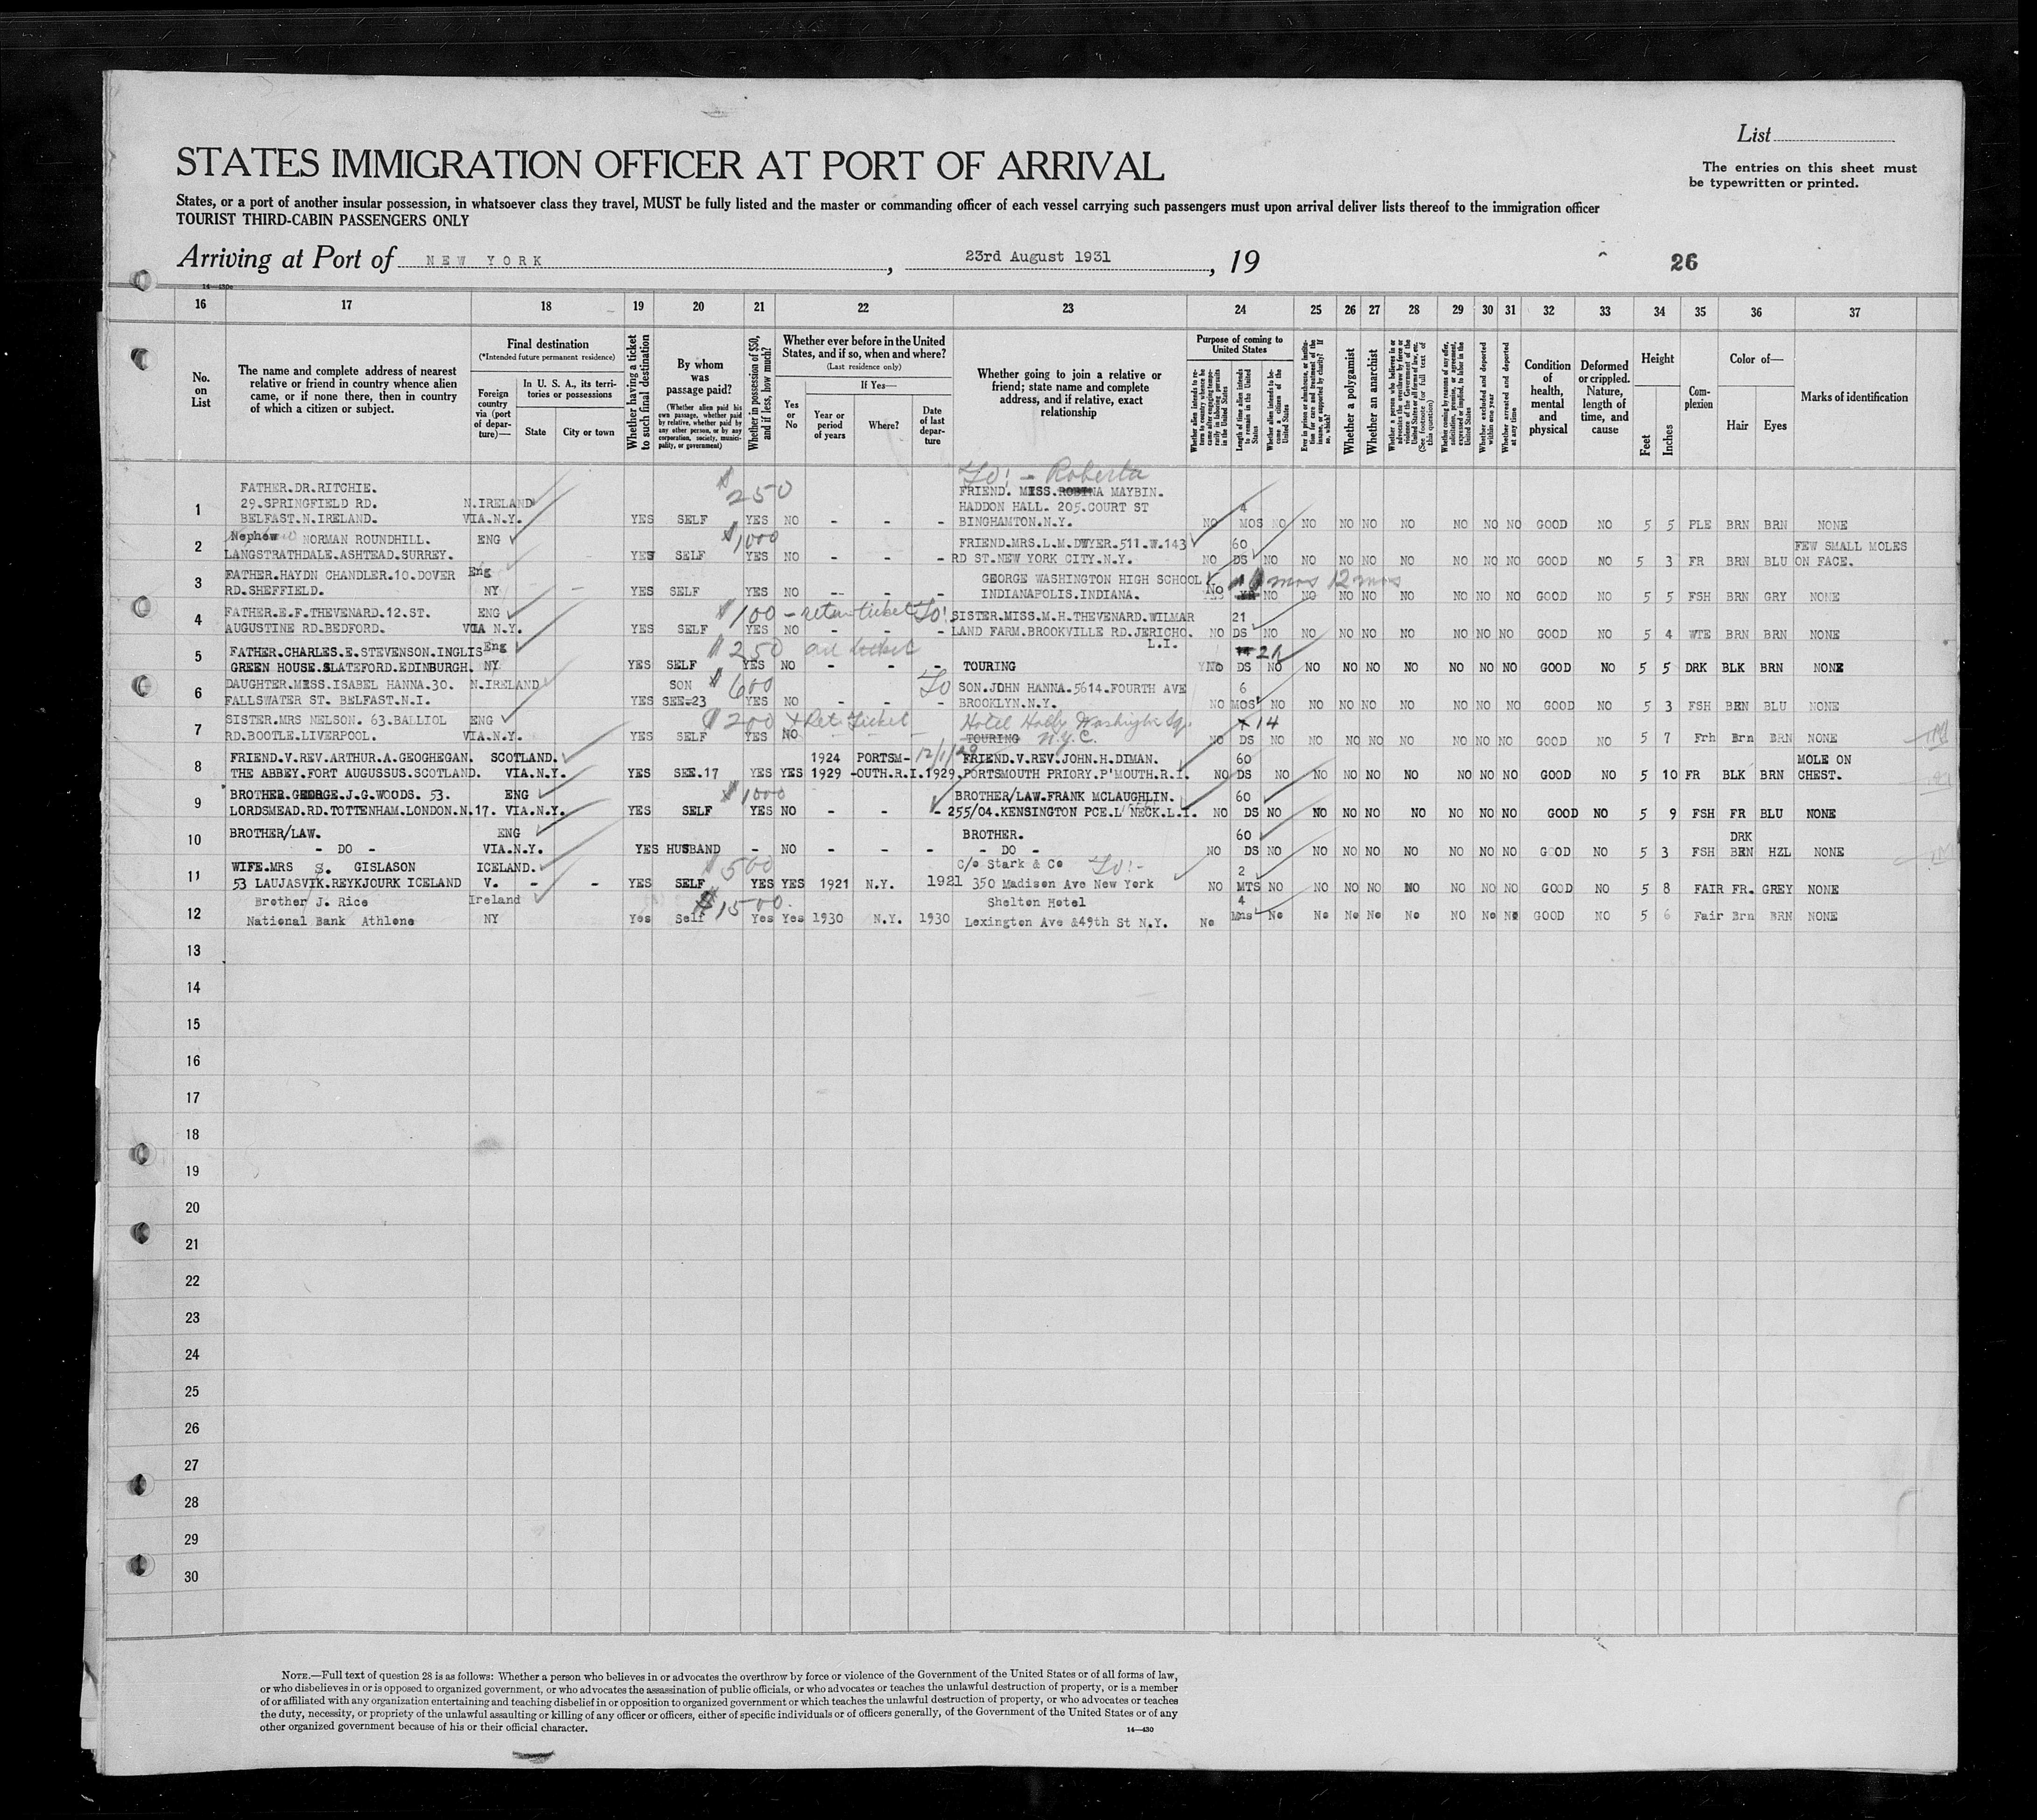 List
STATES IMMIGRATION OFFICER AT PORT OF ARRIVAL
The entries on this sheet must
be typewritten or printed.
States, or a port of another insular possession, in whatsoever class they travel, MUST be fully listed and the master or commanding officer of each vessel carrying such passengers must upon arrival deliver lists thereof to the immigration officer
TOURIST THIRD-CABIN PASSENGERS ONLY
Arriving at Port of NEW YORK, 23rd August 1931, 19
26
14—430c
16 17 18 19 20 21 22 23 24 25 26 27 28 29 30 31 32 33 34 35 36 37
No. on List
The name and complete address of nearest relative or friend in country whence alien came, or if none there, then in country of which a citizen or subject.
Final destination
(*Intended future permanent residence)
Foreign country via (port of departure)—
In U. S. A., its territories or possessions
State
City or town
Whether having a ticket to such final destination
By whom was passage paid?
(Whether alien paid his own passage, whether paid by relative, whether paid by any other person, or by any corporation, society, municipality, or government)
Whether in possession of $50, and if less, how much?
Whether ever before in the United States, and if so, when and where?
(Last residence only)
Yes or No
If Yes—
Year or period of years
Where?
Date of last departure
Whether going to join a relative or friend; state name and complete address, and if relative, exact relationship
Purpose of coming to United States
Whether alien intends to return to country whence he came after engaging temporarily in laboring pursuits in the United States
Length of time alien intends to remain in the United States
Whether alien intends to become a citizen of the United States
Ever in prison or almshouse, or institution for care and treatment of the insane, or supported by charity? If so, which?
Whether a polygamist
Whether an anarchist
Whether a person who believes in or advocates the overthrow by force or violence of the Government of the United States or all forms of law, etc. (See footnote for full text of this question)
Whether coming by reasons of any offer, solicitation, promise, or agreement, expressed or implied, to labor in the United States
Whether excluded and deported within one year
Whether arrested and deported at any time
Condition of health, mental and physical
Deformed or crippled. Nature, length of time, and cause
Height
Feet
Inches
Complexion
Color of—
Hair
Eyes
Marks of identification
$250 To! - Roberta
FATHER.DR.RITCHIE.
29.SPRINGFIELD RD. N.IRELAND FRIEND. MISS. MAYBIN.
HADDON HALL. 205.COURT ST 4
1 BELFAST.N.IRELAND. VIA.N.Y. YES SELF YES NO - - - BINGHAMTON.N.Y. NO MOS NO NO NO NO NO NO NO NO GOOD NO 5 5 PLE BRN BRN NONE
Nephew NORMAN ROUNDHILL. ENG $1000 FRIEND.MRS.L.M.DWYER.511.W.143 60 FEW SMALL MOLES
2 LANGSTRATHDALE.ASHTEAD.SURREY. YES SELF YES NO - - - RD ST.NEW YORK CITY.N.Y. NO DS NO NO NO NO NO NO NO NO GOOD NO 5 3 FR BRN BLU ON FACE.
FATHER.HAYDN CHANDLER.10.DOVER Eng GEORGE WASHINGTON HIGH SCHOOL No mos 12 mos
3 RD.SHEFFIELD. NY - YES SELF YES NO -- - - INDIANAPOLIS.INDIANA. NO NO NO NO NO NO NO NO GOOD NO 5 5 FSH BRN GRY NONE
FATHER.E.F.THEVENARD.12.ST. ENG $100 - return ticket To! SISTER.MISS.M.H.THEVENARD.WILMAR 21
4 AUGUSTINE RD.BEDFORD. VIA N.Y. YES SELF YES NO - - - LAND FARM.BROOKVILLE RD.JERICHO. NO DS NO NO NO NO NO NO NO NO GOOD NO 5 4 WTE BRN BRN NONE
L.I.
FATHER.CHARLES.E.STEVENSON.INGLIS Eng $250 ticket 21
5 GREEN HOUSE.SLATEFORD.EDINBURGH. NY YES SELF YES NO - - - TOURING NO DS NO NO NO NO NO NO NO NO GOOD NO 5 5 DRK BLK BRN NONE
DAUGHTER.MISS.ISABEL HANNA.30. N.IRELAND SON $600 To SON.JOHN HANNA.5614.FOURTH AVE 6
6 FALLSWATER ST. BELFAST.N.I. YES SEE-23 YES NO - - - BROOKLYN.N.Y. NO MOS NO NO NO NO NO NO NO NO GOOD NO 5 3 FSH BRN BLU NONE
SISTER.MRS NELSON. 63.BALLIOL ENG $200 + Ret. Ticket Hotel Holly Washington Sq. 14
7 RD.BOOTLE.LIVERPOOL. VIA.N.Y. YES SELF YES NO TOURING N.Y.C. NO DS NO NO NO NO NO NO NO NO GOOD NO 5 7 Frh Brn BRN NONE
FRIEND.V.REV.ARTHUR.A.GEOGHEGAN. SCOTLAND. 1924 PORTSM- 12/1/29 FRIEND.V.REV.JOHN.H.DIMAN. 60 MOLE ON
8 THE ABBEY.FORT AUGUSSUS.SCOTLAND. VIA.N.Y. YES SEE.17 YES YES 1929 -OUTH.R.I.1929. PORTSMOUTH PRIORY.P'MOUTH.R.I. NO DS NO NO NO NO NO NO NO NO GOOD NO 5 10 FR BLK BRN CHEST.
BROTHER.GEORGE.J.G.WOODS. 53. ENG $1000 BROTHER/LAW.FRANK MCLAUGHLIN. 60
9 LORDSMEAD.RD.TOTTENHAM.LONDON.N.17. VIA.N.Y. YES SELF YES NO - - - 255/04.KENSINGTON PCE.L NECK.L.I. NO DS NO NO NO NO NO NO NO NO GOOD NO 5 9 FSH FR BLU NONE
BROTHER/LAW. ENG BROTHER. 60 DRK
10 - DO - VIA.N.Y. YES HUSBAND - NO - - - - DO - NO DS NO NO NO NO NO NO NO NO GOOD NO 5 3 FSH BRN HZL NONE
WIFE.MRS S. GISLASON ICELAND. $500 C/o Stark & Co To!- 2
11 53 LAUJASVIK.REYKJOURK ICELAND V. - - YES SELF YES YES 1921 N.Y. 1921 350 Madison Ave New York NO MTS NO NO NO NO NO NO NO NO GOOD NO 5 8 FAIR FR. GREY NONE
Brother J. Rice Ireland $1500. Shelton Hotel 4
12 National Bank Athlone NY Yes Self Yes Yes 1930 N.Y. 1930 Lexington Ave &49th St N.Y. No Mns No No No No No NO No No GOOD NO 5 6 Fair Brn BRN NONE
13
14
15
16
17
18
19
20
21
22
23
24
25
26
27
28
29
30
NOTE.—Full text of question 28 is as follows: Whether a person who believes in or advocates the overthrow by force or violence of the Government of the United States or of all forms of law,
or who disbelieves in or is opposed to organized government, or who advocates the assassination of public officials, or who advocates or teaches the unlawful destruction of property, or is a member
of or affiliated with any organization entertaining and teaching disbelief in or opposition to organized government or which teaches the unlawful destruction of property, or who advocates or teaches
the duty, necessity, or propriety of the unlawful assaulting or killing of any officer or officers, either of specific individuals or of officers generally, of the Government of the United States or of any
other organized government because of his or their official character.
14—430